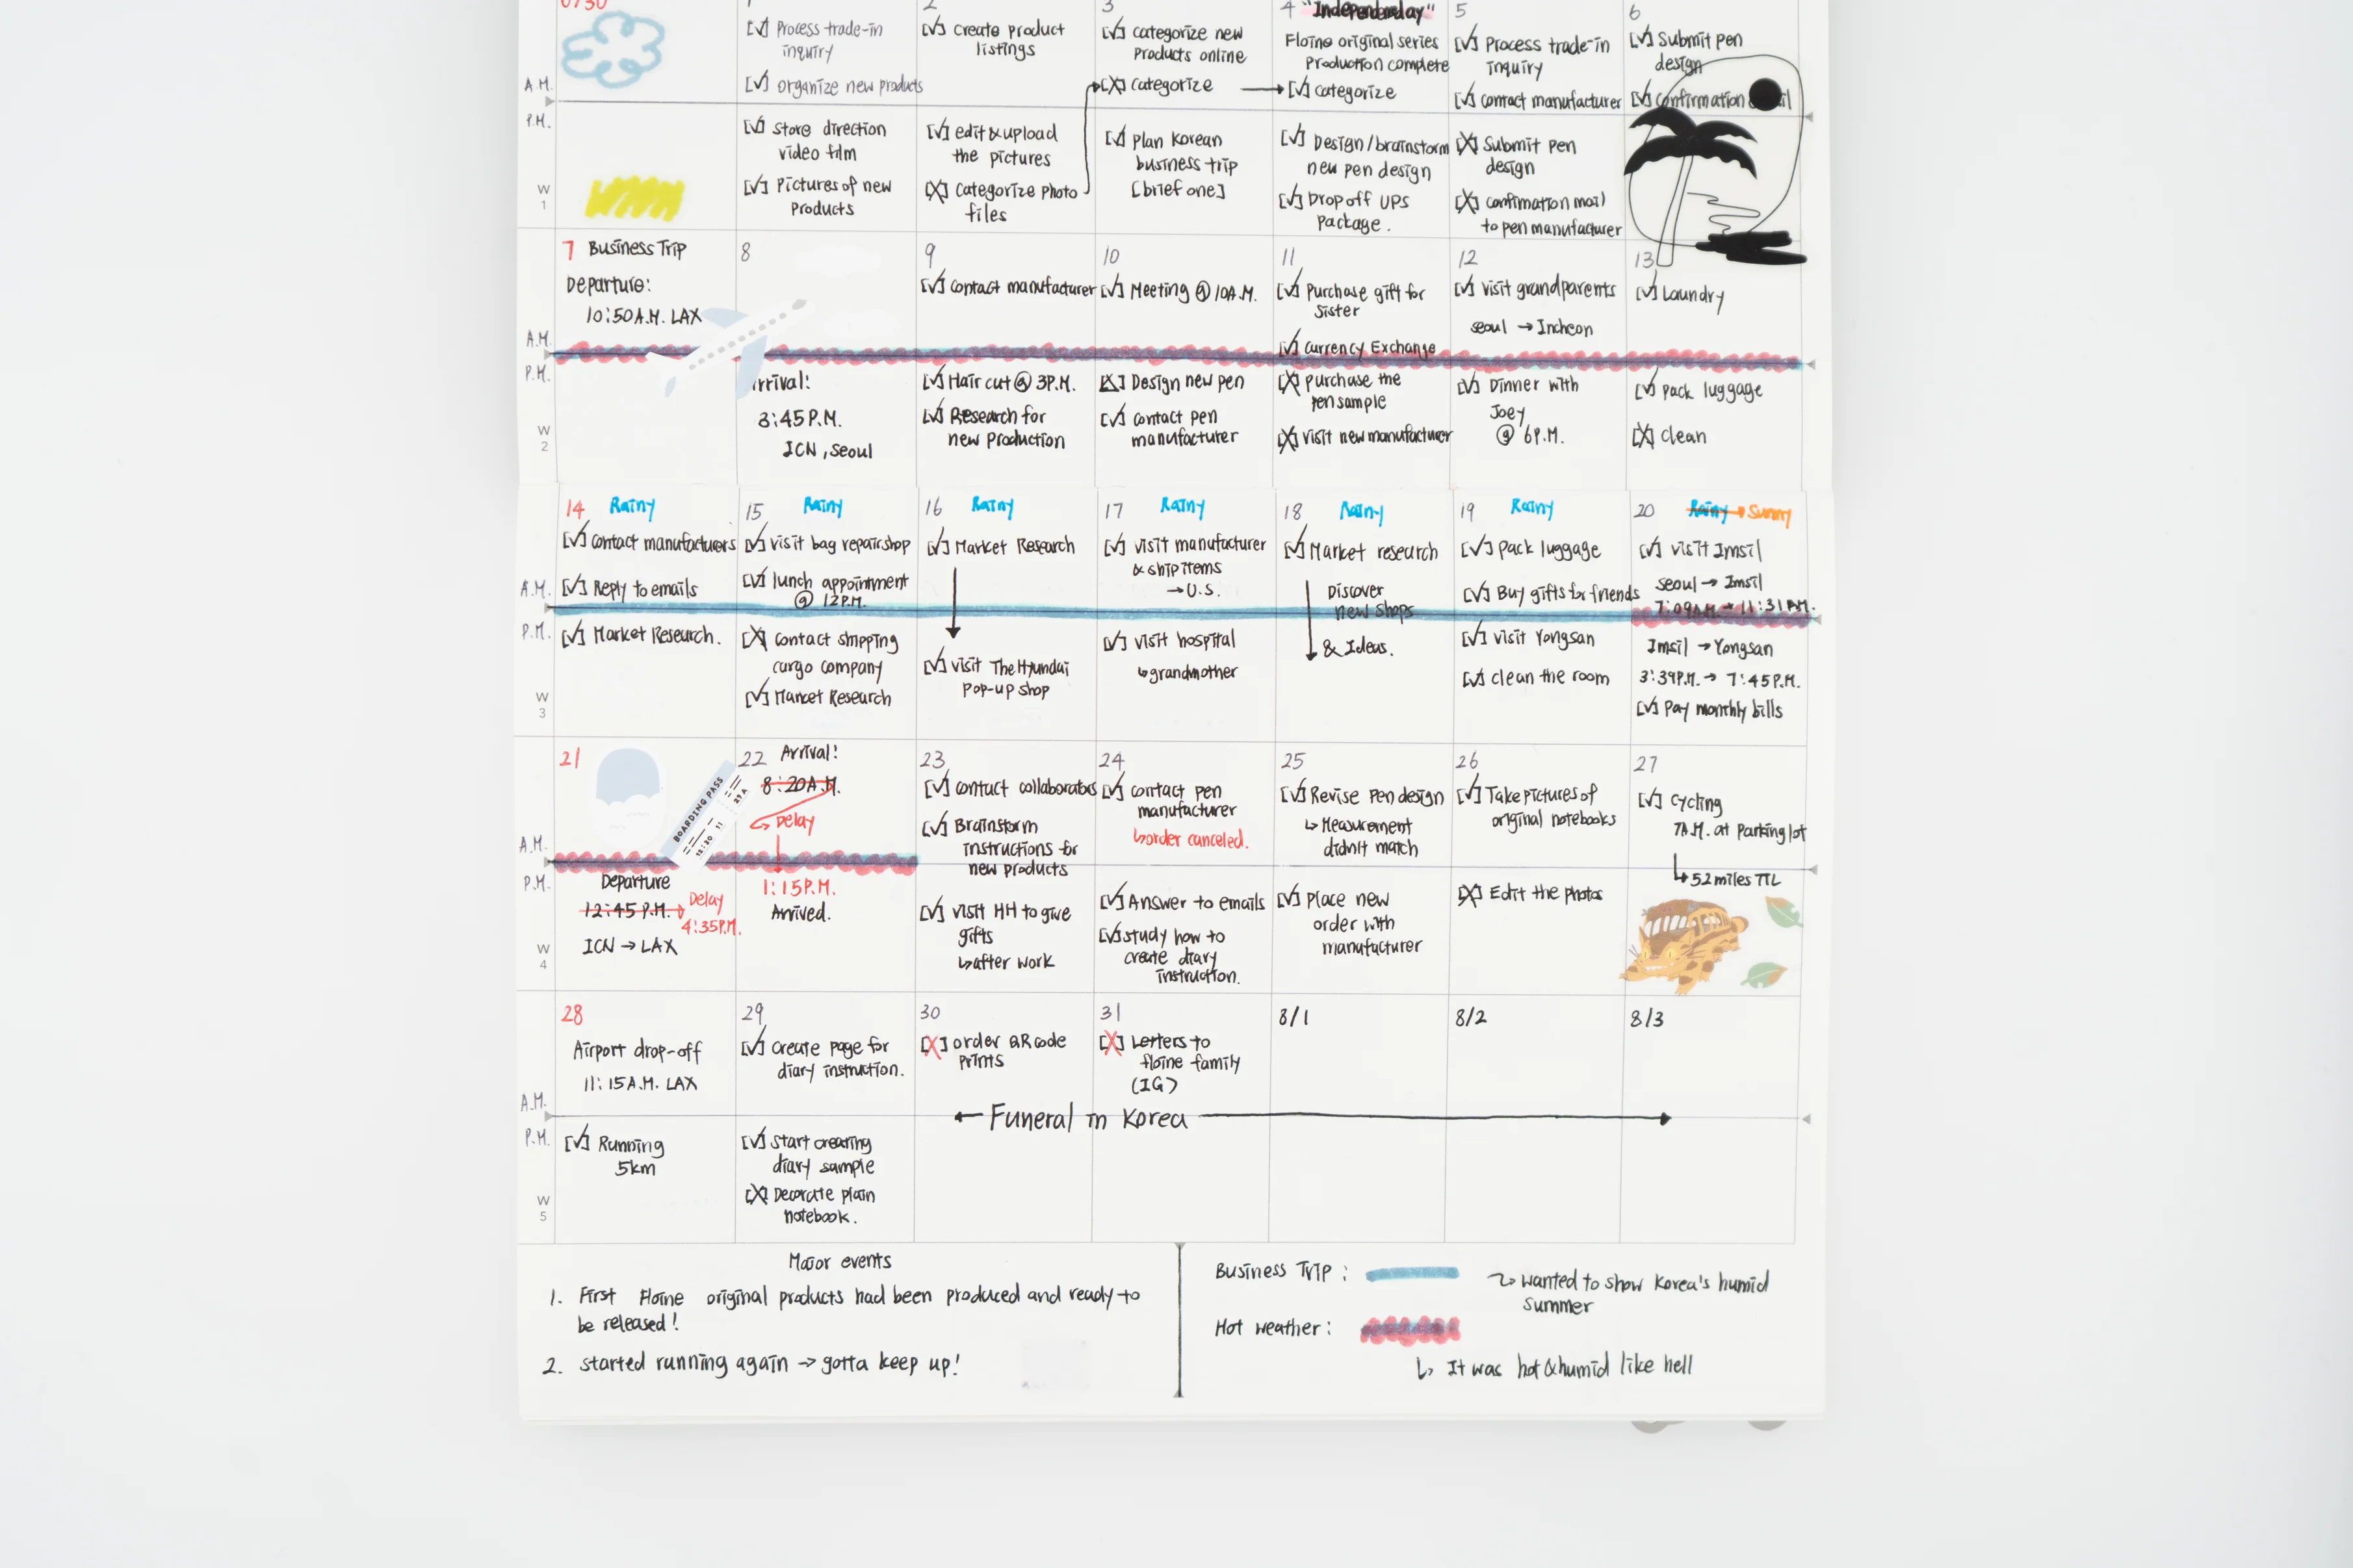 0730
1
[√] Process trade-in
inquiry
[√] organize new products
2
[√] create product
listings
3
[√] categorize new
Products online
[X] categorize
4 "Independenday"
Floine original series
Production complete
[√] categorize
5
[√] Process trade-in
inquiry
[√] contact manufacturer
6
[√] Submit pen
design
[√] Confirmation
A.M.
P.M.
W
1
[√] Store direction
video film
[√] Pictures of new
Products
[√] edit & upload
the pictures
[X] Categorize photo
files
[√] plan Korean
business trip
[brief one]
[√] Design/brainstorm
new pen design
[√] Drop off UPS
Package.
[X] Submit pen
design
[X] confimation mail
to pen manufacturer
7 Business Trip
Departure:
10:50 A.M. LAX
8
9
[√] contact manufacturer
10
[√] Meeting @ 10A.M.
11
[√] Purchase gift for
Sister
[√] Currency Exchange
12
[√] visit grandparents
seoul → Incheon
13
[√] Laundry
A.M.
P.M.
W
2
rrival!
3:45 P.M.
ICN, Seoul
[√] Hair cut @ 3P.M.
[√] Research for
new Production
[X] Design new pen
[√] contact pen
manufacturer
[X] purchase the
pen sample
[X] visit new manufacturer
[√] Dinner with
Joey
@ 6P.M.
[√] pack luggage
[X] clean
14 Rainy
[√] contact manufacturers
[√] Reply to emails
15 Rainy
[√] visit bag repair shop
[√] lunch appointment
@ 12P.M.
16 Rainy
[√] Market Research
17 Rainy
[√] visit manufacturer
& ship items
→ U.S.
18 Rainy
[√] Market research
Discover
new shops
& Ideas.
19 Rainy
[√] pack luggage
[√] Buy gifts for friends
20 Rainy → Sunny
[√] visit Imsil
seoul → Imsil
7:09A.M. → 11:31A.M.
A.M.
P.M.
W
3
[√] Market Research.
[X] contact shipping
cargo company
[√] Market Research
[√] visit The Hyundai
Pop-up shop
[√] visit hospital
↳ grandmother
[√] visit Yongsan
[√] clean the room
Imsil → Yongsan
3:39P.M. → 7:45P.M.
[√] Pay monthly bills
21
BOARDING PASS
12:20 11 27A
22 Arrival!
8:20A.M.
Delay
23
[√] contact collaborators
[√] Brainstorm
instructions for
new products
24
[√] contact pen
manufacturer
↳ order canceled.
25
[√] Revise pen design
↳ Measurement
didn't match
26
[√] Take pictures of
original notebooks
27
[√] Cycling
7A.M. at Parking lot
↳ 52 miles TTL
A.M.
P.M.
W
4
Departure
12:45 P.M. → Delay
4:35P.M.
ICN → LAX
1:15P.M.
Arrived.
[√] visit HH to give
gifts
↳ after work
[√] Answer to emails
[√] study how to
create diary
instruction.
[√] Place new
order with
manufacturer
[X] Edit the photos
28
Airport drop-off
11:15A.M. LAX
29
[√] Create page for
diary instruction.
30
[X] order QR code
prints
31
[X] Letters to
floine family
(IG)
8/1
8/2
8/3
A.M.
← Funeral in Korea →
P.M.
W
5
[√] Running
5km
[√] Start creating
diary sample
[X] Decorate plain
notebook.
Major events
1. First Floine original products had been produced and ready to
be released!
2. started running again → gotta keep up!
Business Trip:
Hot weather:
wanted to show Korea's humid
summer
↳ It was hot & humid like hell